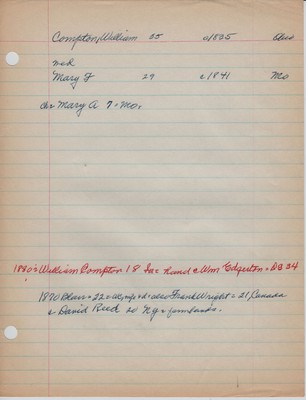 Compton, William 25 c1835 Ohio
md
Mary F 29 c1841 Mo
ch Mary A 7 = Mo.
1880 = William Compton 18 Ia = hand c Wm Edgerton = DG 34
1870 Blan = 22 = Olympd = also Frank Wright = 21 Canada
& David Reed 20 = farmhands.